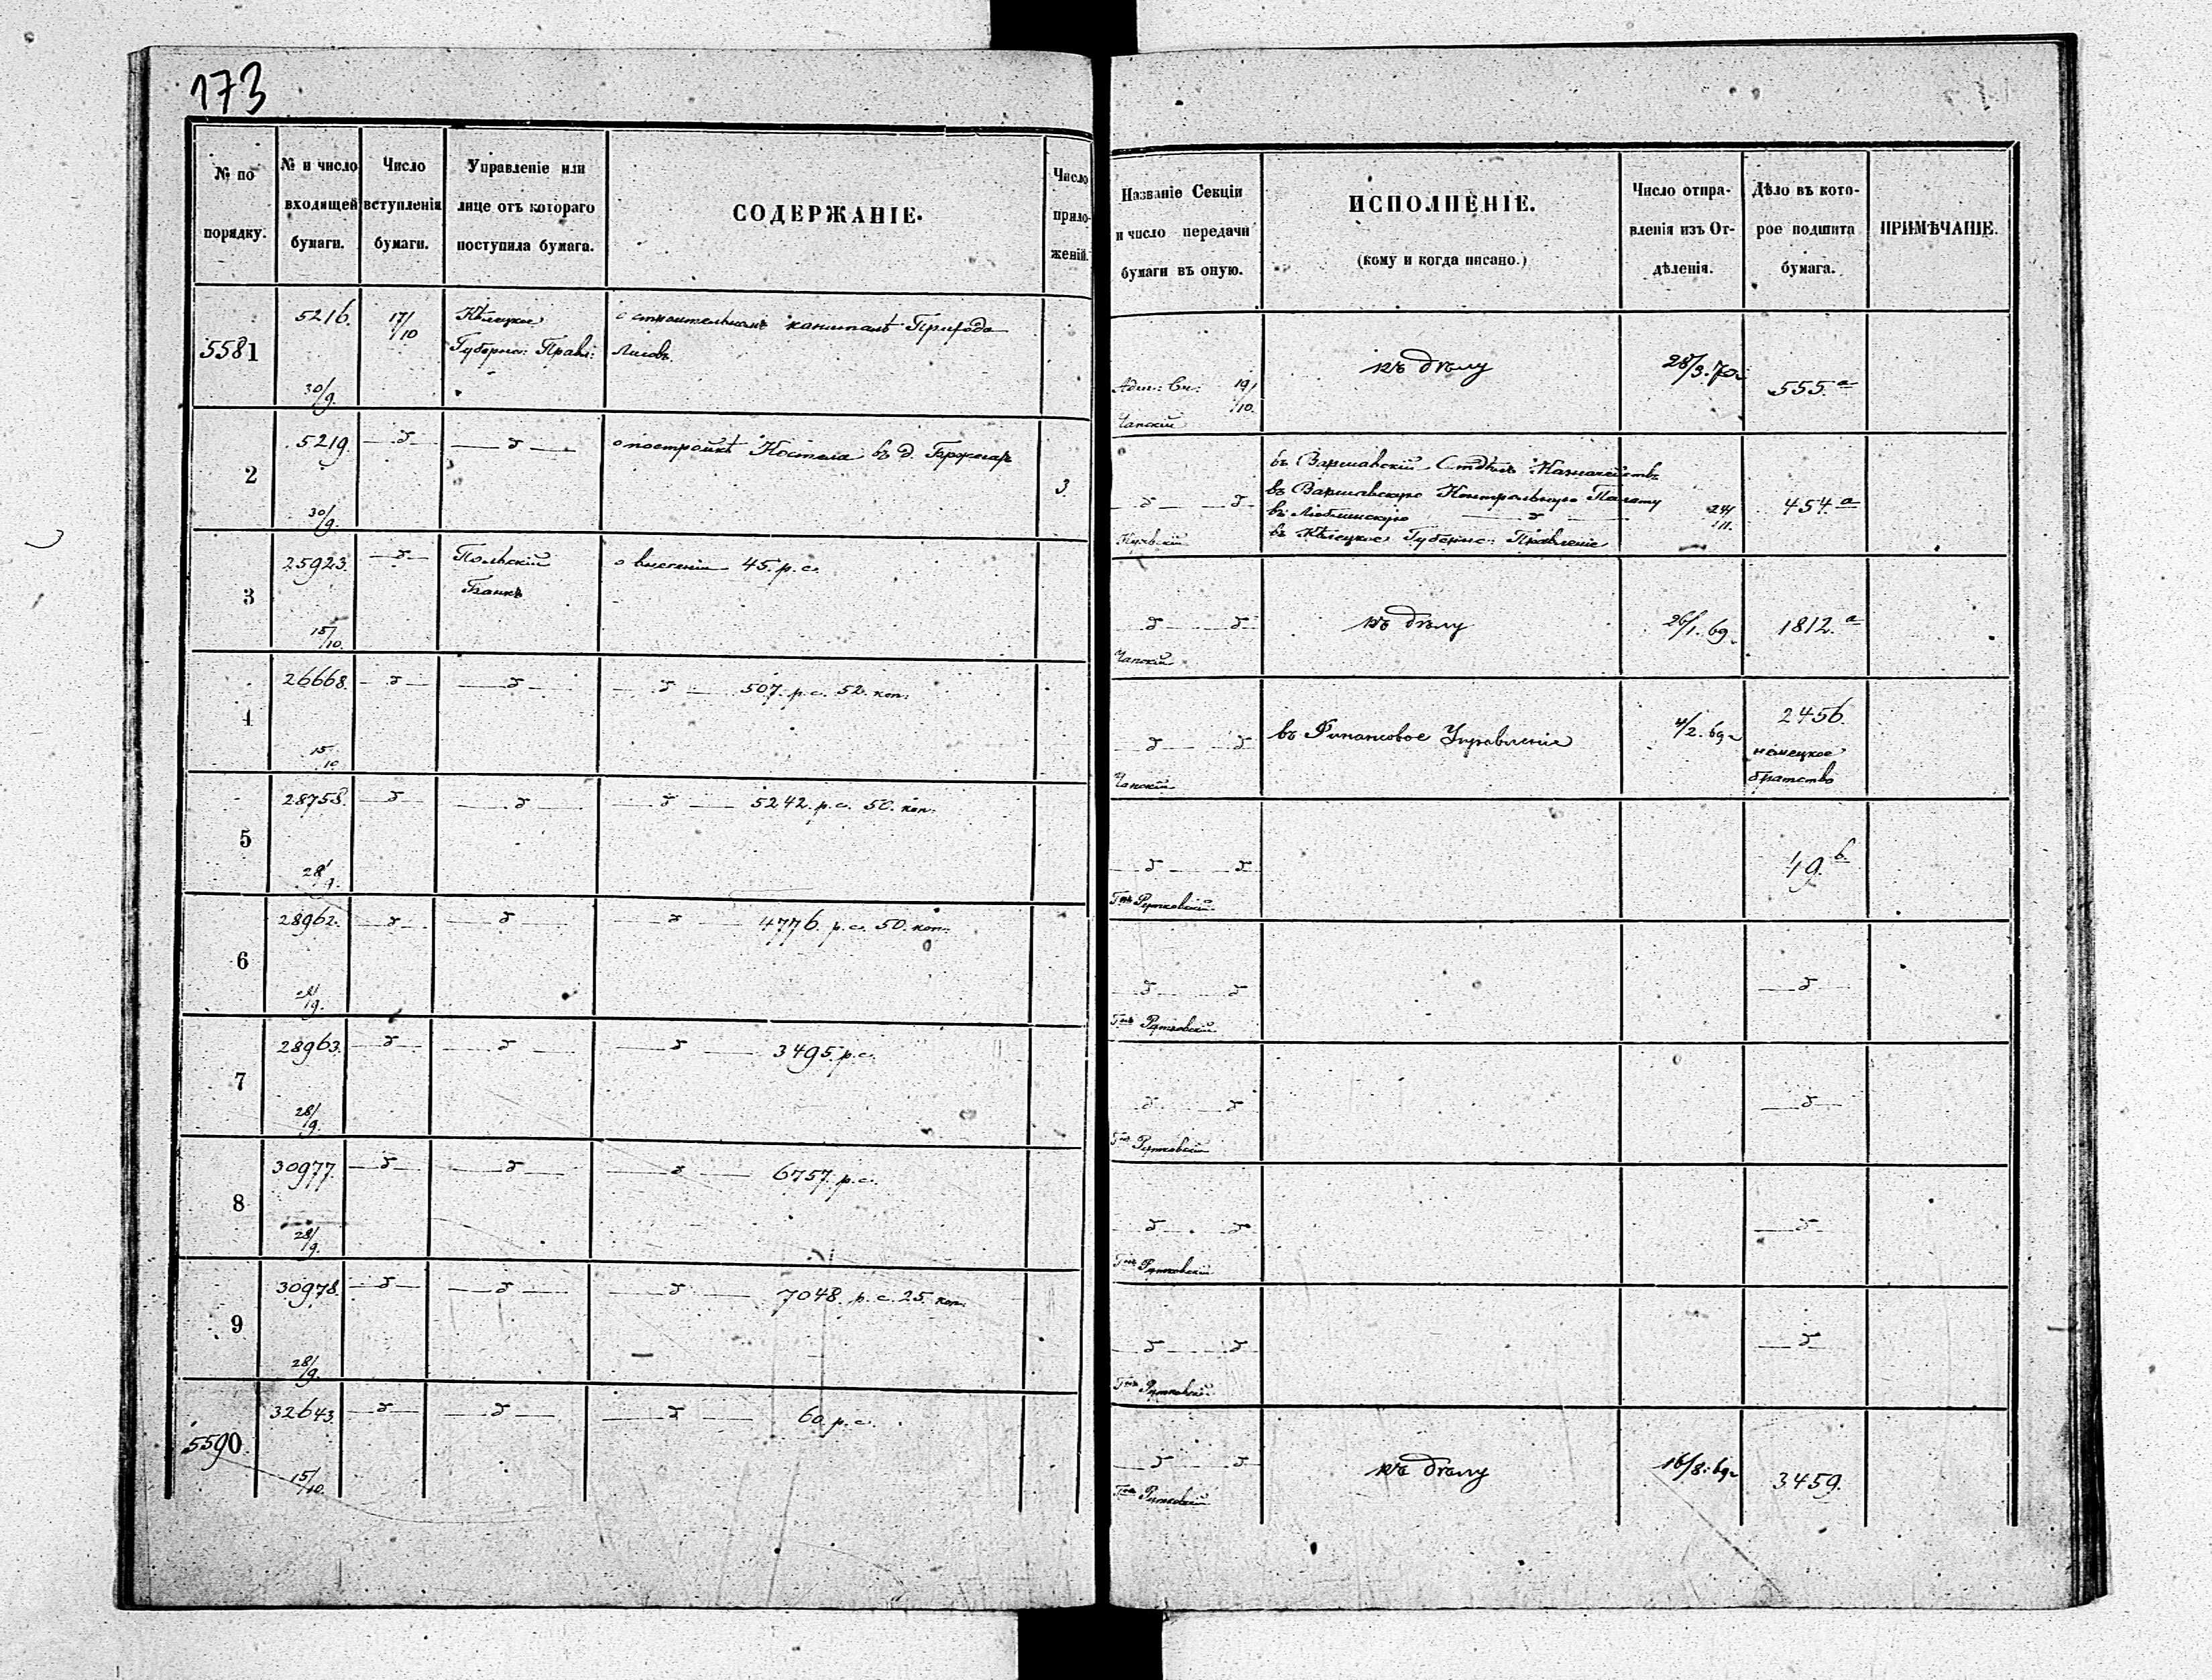 173
№ по порядку.
№ и число входящей бумаги.
Число вступленія бумаги.
Управленіе или лице отъ котораго поступила бумага.
СОДЕРЖАНІЕ.
Число приложеній.
Названіе Секціи и число передачи бумаги въ оную.
ИСПОЛНЕНІЕ.
(кому и когда писано.)
Число отправленія изъ Отдѣленія.
Дѣло въ которое подшита бумага.
ПРИМѢЧАНІЕ.
5581
5216.
30/9.
17/10
Кѣлецкое
Губернс: Правл:
о строительномъ капиталѣ Прихода
Адм: Сек: 19/10.
Чапскій
къ дѣлу
28/3. 70
555.а
2
5219.
30/9.
— д —
— д —
о постройкѣ Костела въ д.
3
д — д
въ Варшавскій Отдѣлъ Казначействъ
въ Варшавскую Контрольную Палату
въ Люблинскую — д —
въ Кѣлецкое Губернс: Правленіе
24/11.
454.а
3
25923.
15/10.
— д —
Польскій
Банкъ
о внесеніи 45. р. с.
д — д
Чапскій
къ дѣлу
26/1. 69
1812.а
4
26668.
15/10
— д —
— д —
— д — 507. р. с. 52. коп.
д — д
Чапскій
въ Финансовое Управленіе
4/2. 69
2456.
немецкое
братство
5
28758.
28/9.
— д —
— д —
— д — 5242. р. с. 50. коп.
д — д
Гнъ Рутковскій
49.b.
6
28962.
28/9.
— д —
— д —
— д — 4776. р. с. 50. коп.
д — д
Гнъ Рутковскій
— д —
7
28963.
28/9.
— д —
— д —
— д — 3495. р. с.
д — д
Гнъ Рутковскій
— д —
8
30977.
28/9.
— д —
— д —
— д — 6757. р. с.
д — д
Гнъ Рутковскій
— д —
9
30978.
28/9.
— д —
— д —
— д — 7048. р. с. 25. коп.
д — д
Гнъ Рутковскій
— д —
5590
32643.
15/10.
— д —
— д —
— д — 60. р. с.
д — д
Гнъ Рутковскій
къ дѣлу
16/8. 69
3459.